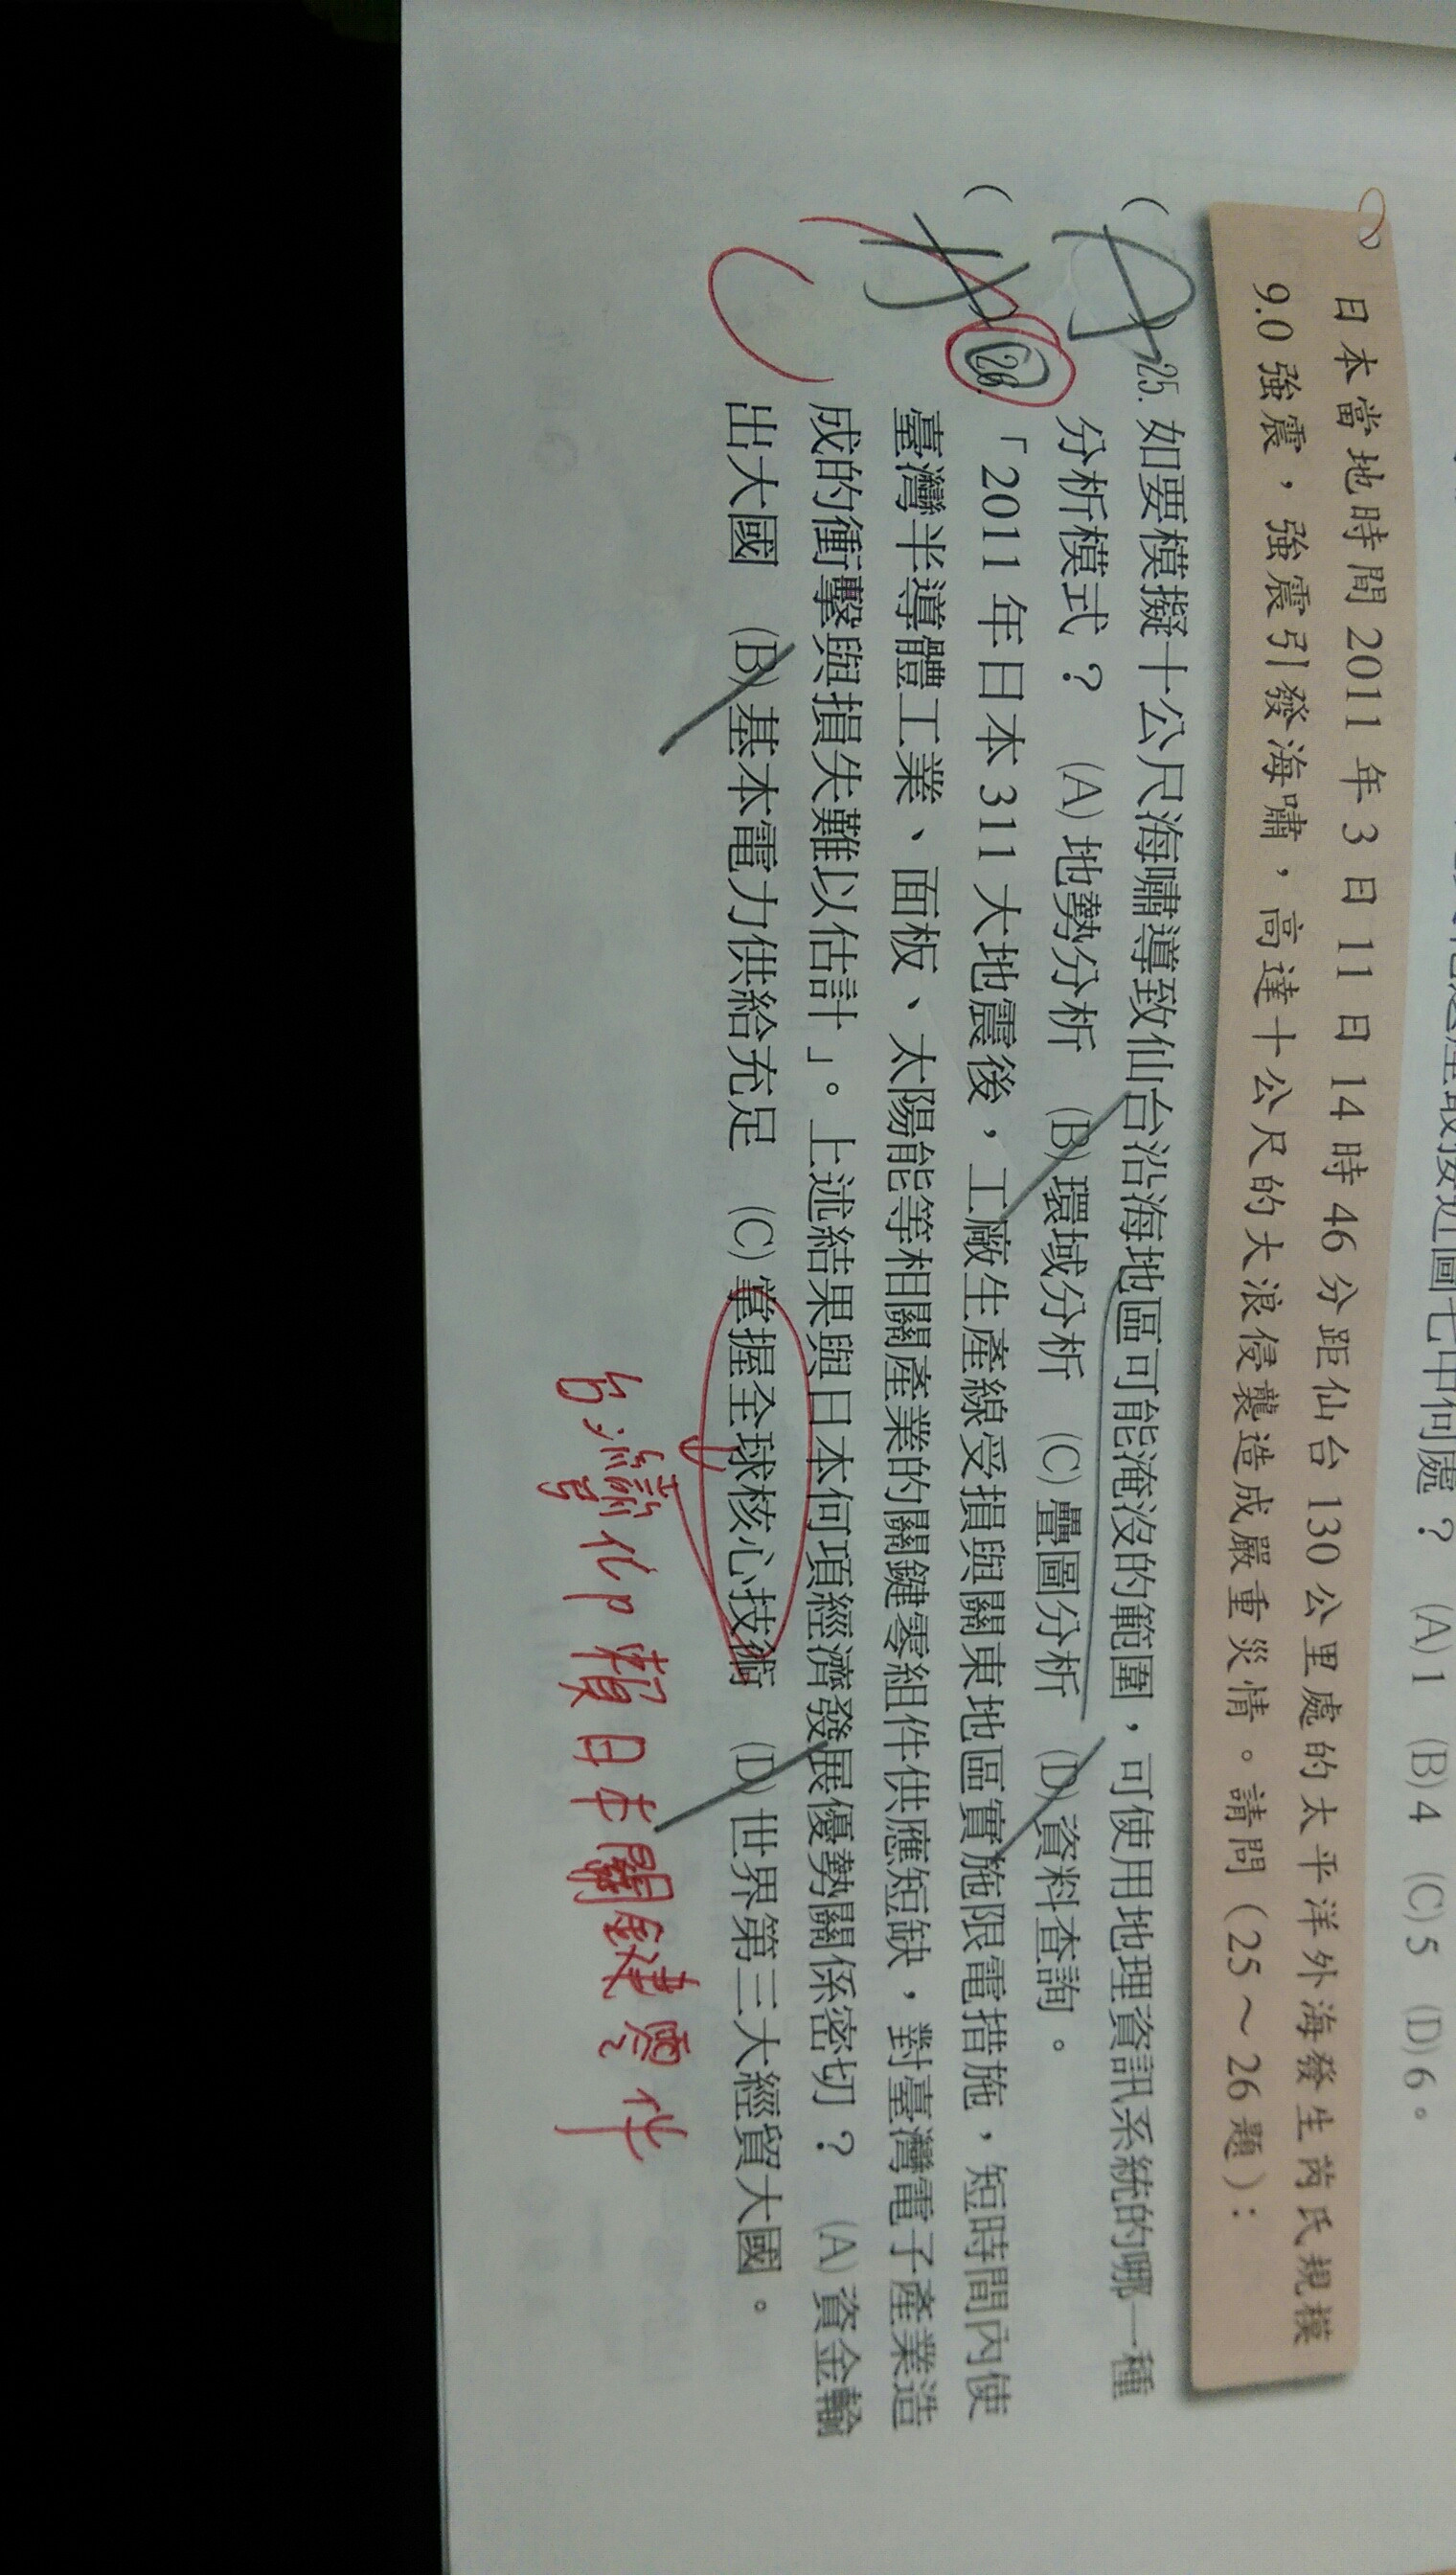 圖七中何處？ (A) 1 (B) 4 (C) 5 (D) 6。
日本當地時間 2011 年 3 日 11 日 14 時 46 分距仙台 130 公里處的太平洋外海發生芮氏規模
9.0 強震，強震引發海嘯，高達十公尺的大浪侵襲造成嚴重災情。請問（25～26 題）：
( A )25. 如要模擬十公尺海嘯導致仙台沿海地區可能淹沒的範圍，可使用地理資訊系統的哪一種
分析模式？ (A) 地勢分析 (B) 環域分析 (C) 疊圖分析 (D) 資料查詢。
( 26. 「2011 年日本 311 大地震後，工廠生產線受損與關東地區實施限電措施，短時間內使
臺灣半導體工業、面板、太陽能等相關產業的關鍵零組件供應短缺，對臺灣電子產業造
成的衝擊與損失難以估計」。上述結果與日本何項經濟發展優勢關係密切？ (A) 資金輸
出大國 (B) 基本電力供給充足 (C) 掌握全球核心技術 (D) 世界第三大經貿大國。
C
台灣仰賴日本關鍵零件